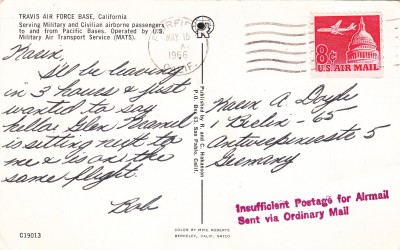 TRAVIS AIR FORCE BASE, California
Serving Military and Civilian airborne passengers
to and from Pacific Bases. Operated by U.S.
Military Air Transport Service (MATS).
MAY 15
1966
CALIF.
8¢
U.S. AIR MAIL
I'll be leaving
in 3 hours & just
wanted to say
hello. Glen
is sitting next to
me & is on the
same flight.
Bob
A. Doyle
1 Berlin - 65
5
Germany
Published by H. and C. Hakanson
P.O. Box 57, San Pablo, Calif.
Insufficient Postage for Airmail
Sent via Ordinary Mail
C19013
COLOR BY MIKE ROBERTS
BERKELEY, CALIF. 94710